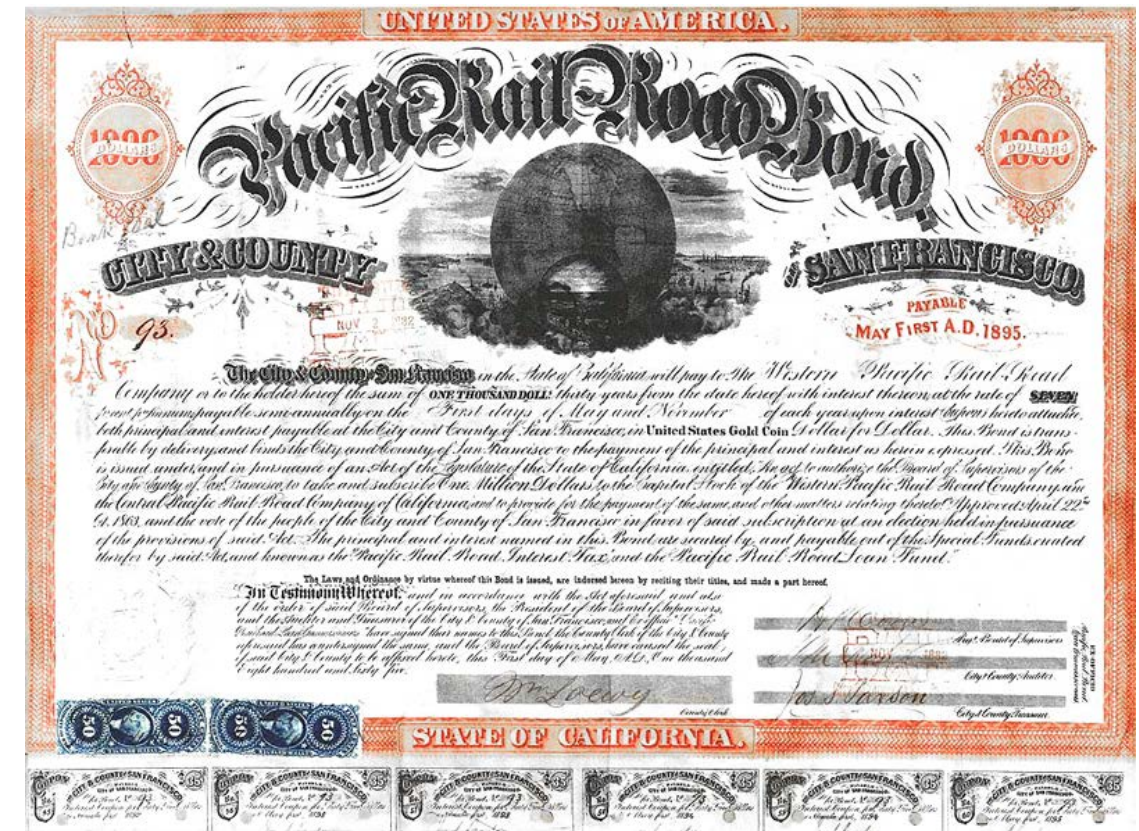 UNITED STATES OF AMERICA.
Pacific Rail-Road Bond,
1000 DOLLARS
1000 DOLLARS
CITY & COUNTY
SAN FRANCISCO,
PAYABLE
MAY FIRST A.D. 1895.
No 93.
NOV 2 1882
The City & County of San Francisco in the State of California will pay to The Western Pacific Rail-Road
Company or to the holder hereof the sum of ONE THOUSAND DOLLS thirty years from the date hereof with interest thereon, at the rate of SEVEN
per cent per annum, payable semi-annually on the First days of May and November of each year upon interest Coupons hereto attached
both principal and interest payable at the City and County of San Francisco, in United States Gold Coin Dollar for Dollar. This Bond is trans-
ferable by delivery, and binds the City and County of San Francisco to the payment of the principal and interest as herein expressed. This Bond
is issued under, and in pursuance of an Act of the Legislature of the State of California, entitled, An act to authorize the Board of Supervisors of the
City and County of San Francisco, to take and subscribe One Million Dollars to the Capital Stock of the Western Pacific Rail Road Company, and
the Central Pacific Rail Road Company of California, and to provide for the payment of the same, and other matters relating thereto." Approved April 22nd
1863, and the vote of the people of the City and County of San Francisco in favor of said subscription at an election held in pursuance
of the provisions of said Act. The principal and interest named in this Bond are secured by, and payable out of the Special Funds created
therefor by said Act, and known as the "Pacific Rail Road Interest Tax," and the Pacific Rail Road Loan Fund."
The Laws and Ordinance by virtue whereof this Bond is issued, are indorsed hereon by reciting their titles, and made a part hereof.
In Testimony Whereof, and in accordance with the Act aforesaid and also
of the order of said Board of Supervisors, the President of the Board of Supervisors,
and the Auditor and Treasurer of the City & County of San Francisco,
have signed their names to this Bond, the County Clerk of the City & County
aforesaid has countersigned the same, and the Board of Supervisors, have caused the seal,
of said City & County to be affixed hereto, this First day of May, A.D. One thousand
Eight hundred and Sixty five.
Prest. Board of Supervisors
NOV 2 1882
City & County Auditor
Wm Loewy
County Clerk
Jos S Paxson
City & County Treasurer
50 50 50 50
STATE OF CALIFORNIA.
COUPON CITY & COUNTY SAN FRANCISCO 35
COUPON CITY & COUNTY SAN FRANCISCO 35
COUPON CITY & COUNTY SAN FRANCISCO 35
COUPON CITY & COUNTY SAN FRANCISCO 35
COUPON CITY & COUNTY SAN FRANCISCO 35
COUPON CITY & COUNTY SAN FRANCISCO 35